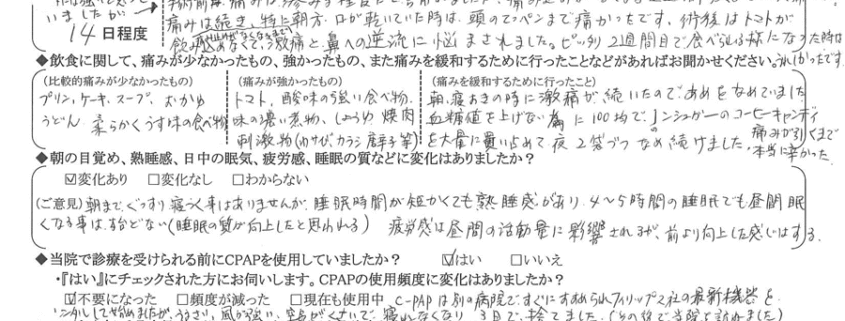 いましたが
14日程度
痛みは続き、特に朝方、口が乾いていた時は、頭のてっぺんまで痛かったです。術後はトマトが
飲み込めなくて、激痛と鼻への逆流に悩まされました。ピッタリ2週間目で食べられる様になった時は
うれしかったです。
◆飲食に関して、痛みが少なかったもの、強かったもの、また痛みを緩和するために行ったことなどがあればお聞かせください。
(比較的痛みが少なかったもの)
プリン、ケーキ、スープ、おかゆ
うどん、柔らかくうす味の食べ物
(痛みが強かったもの)
トマト、酸味の強い食べ物、
味の濃い煮物、しょうゆ 焼肉
刺激物(わさび、カラシ 唐辛子 等)
(痛みを緩和するために行ったこと)
朝、寝おきの時に激痛が続いたのであめをなめていました
血糖値を上げない為に100均でノンシュガーのコーヒーキャンディ
を大量に買い占めて夜2袋づつなめ続けました。
痛みが引くまで
本当に辛かった
◆朝の目覚め、熟睡感、日中の眠気、疲労感、睡眠の質などに変化はありましたか?
☑変化あり □変化なし □わからない
(ご意見)朝までぐっすり寝つく事はありませんが、睡眠時間が短かくても熟睡感があり、4～5時間の睡眠でも昼間眠
くなる事は殆どない(睡眠の質が向上したと思われる) 疲労感は昼間の活動量に影響されるが、前より向上した感じはする。
◆当院で診療を受けられる前にCPAPを使用していましたか? ☑はい □いいえ
・『はい』にチェックされた方にお伺いします。CPAPの使用頻度に変化はありましたか?
☑不要になった □頻度が減った □現在も使用中 C-PAPは別の病院で、すぐにすすめられフィリップス社の最新機器を
レンタルして始めましたが、うるさい、風が強い、空気がくさいで、寝れなくなり 3日で、捨てました。(その後で当院を訪れました)